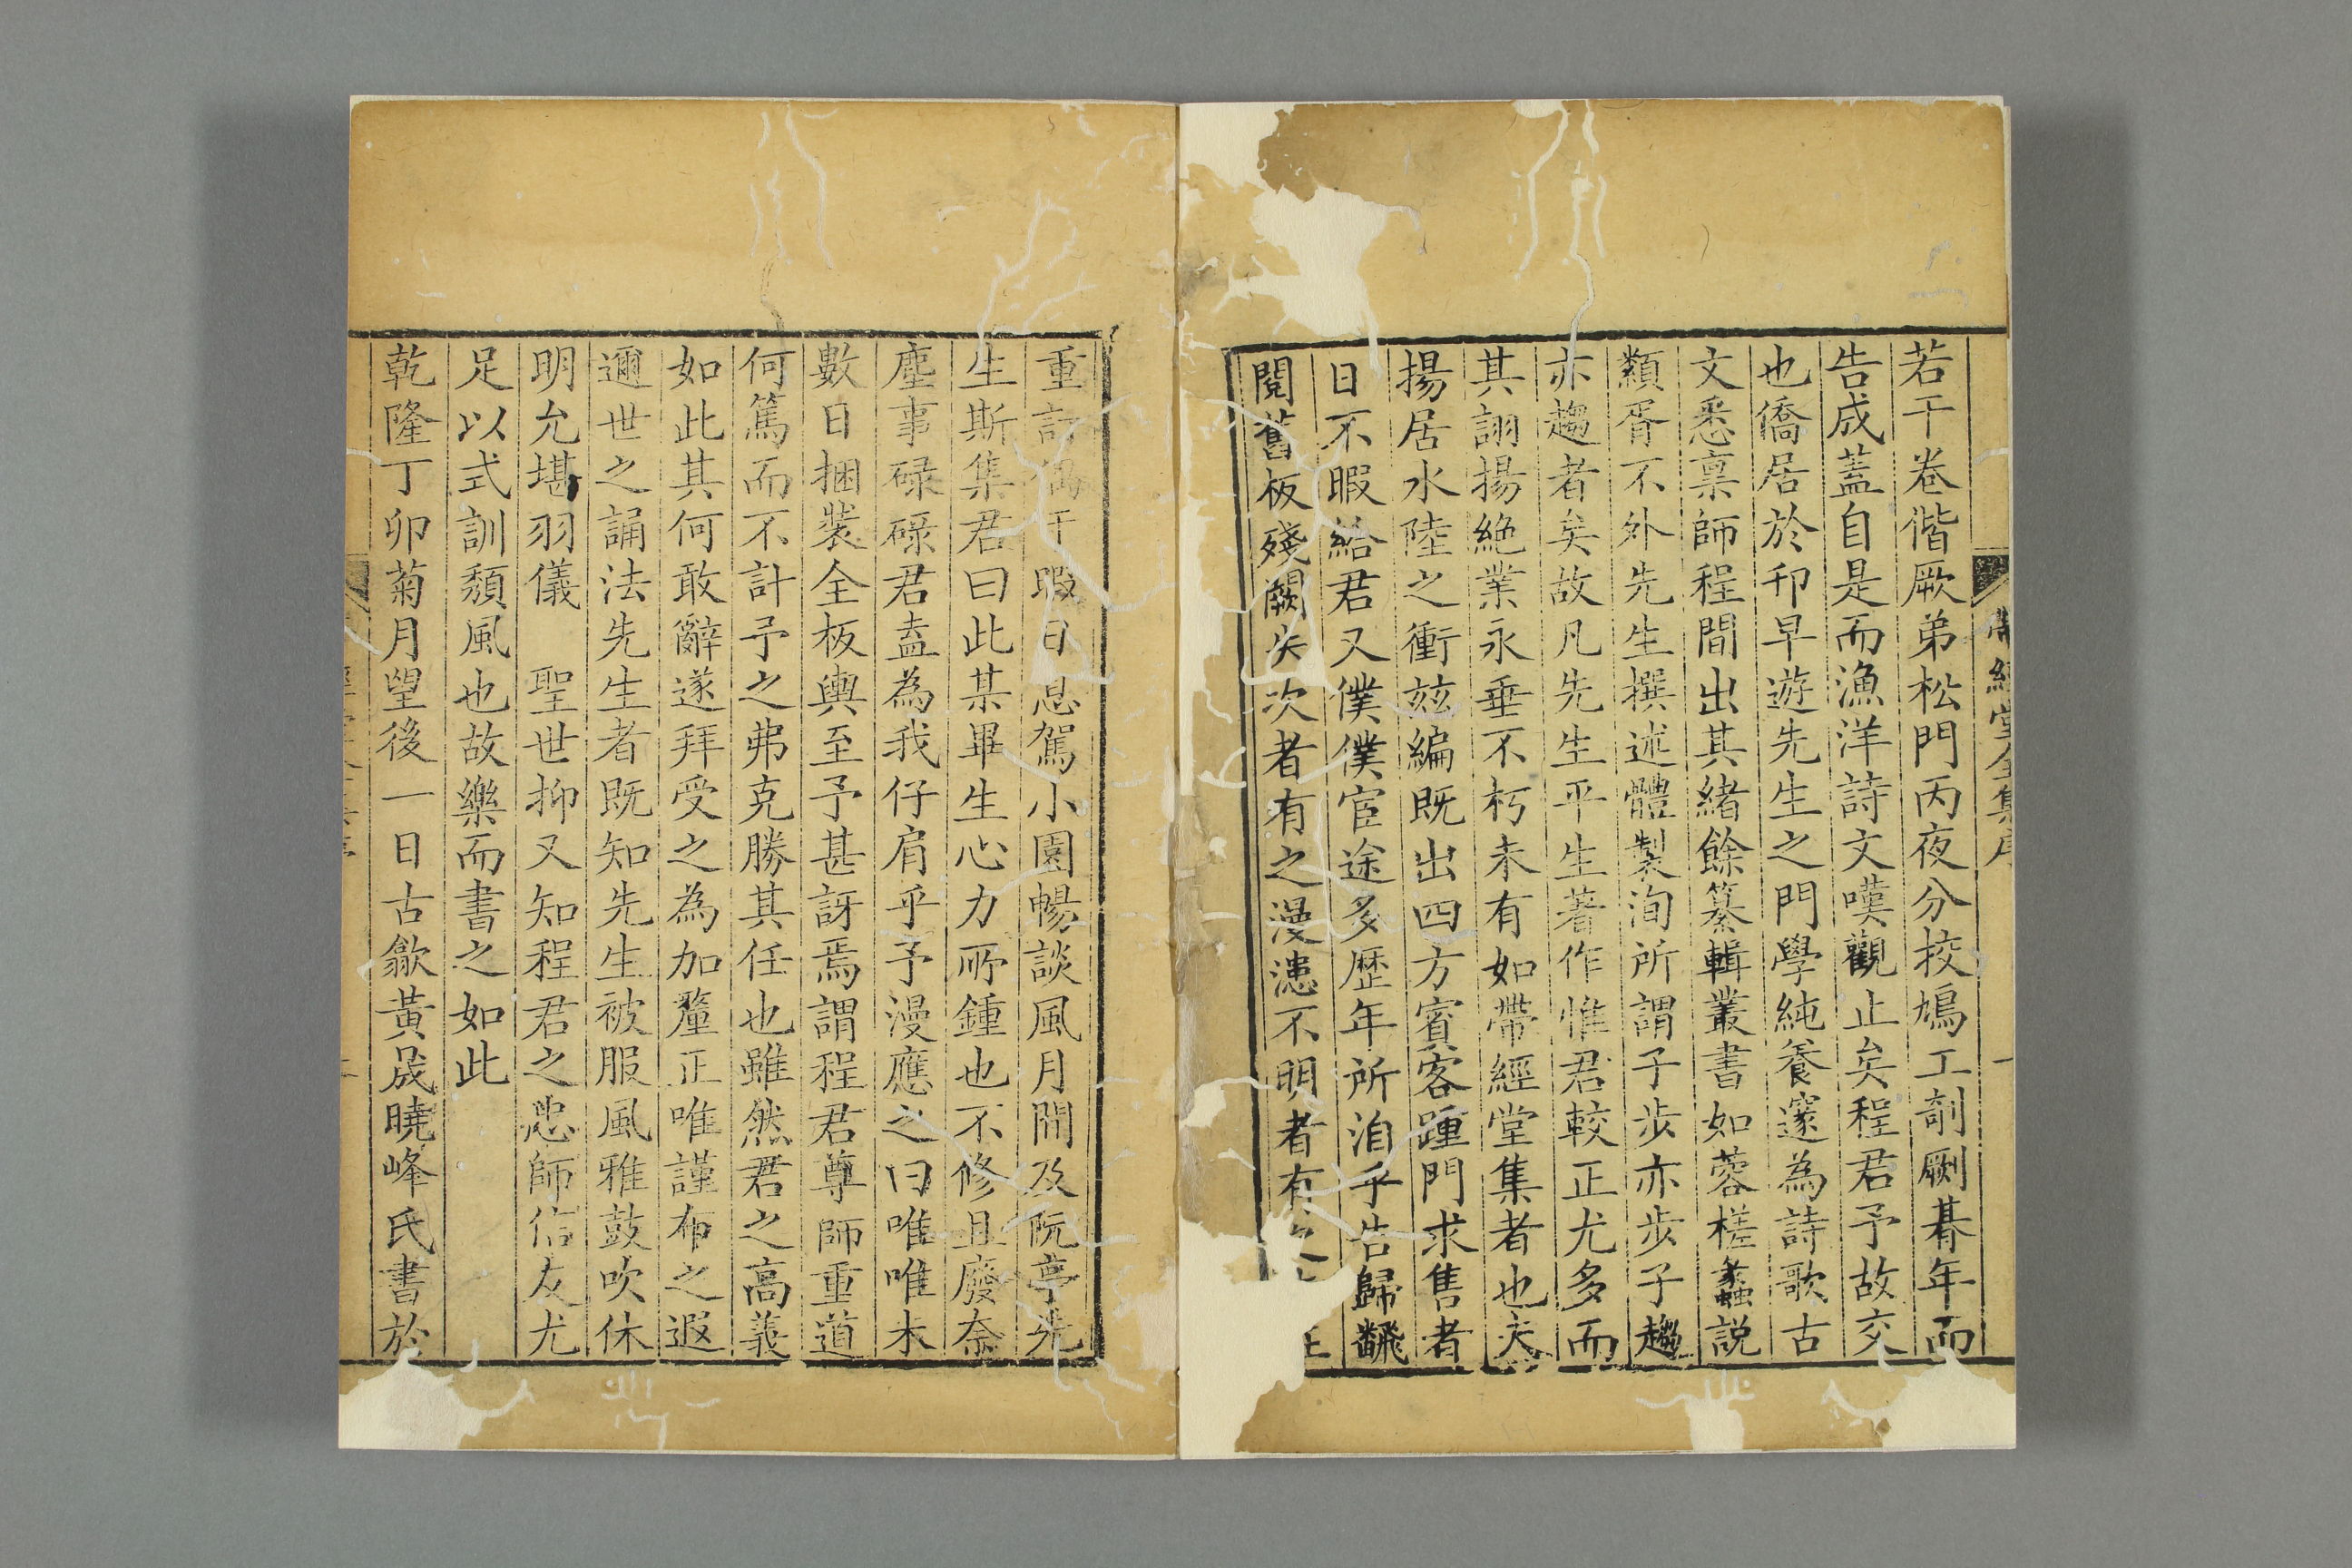 帶經堂全集序
若干卷偕厥弟松門丙夜分挍鳩工剞劂朞年而
告成蓋自是而漁洋詩文嘆觀止矣程君予故交
也僑居於邗早遊先生之門學純養邃為詩歌古
文悉稟師程間出其緒餘纂輯叢書如蓉槎蠡説
纇胥不外先生撰述體製洵所謂子步亦步子趨
亦趨者矣故凡先生平生著作惟君較正尤多而
其詡揚絶業永垂不朽未有如帶經堂集者也夫
揚居水陸之衝兹編既出四方賓客踵門求售者
日不暇給君又僕僕宦途多歷年所洎乎告歸飜
閲舊板殘闕失次者有之漫漶不明者有之
重訂偶于暇日息駕小園暢談風月間及阮亭先
生斯集君曰此某畢生心力所鍾也不修且廢奈
塵事碌碌君盍為我仔肩乎予漫應之曰唯唯未
數日捆裝全板輿至予甚訝焉謂程君尊師重道
何篤而不計予之弗克勝其任也雖然君之高義
如此其何敢辭遂拜受之為加釐正唯謹布之遐
邇世之誦法先生者既知先生被服風雅鼓吹休
明允堪羽儀　聖世抑又知程君之忠師信友尤
足以式訓頽風也故樂而書之如此
乾隆丁卯菊月望後一日古歙黃晟曉峰氏書於